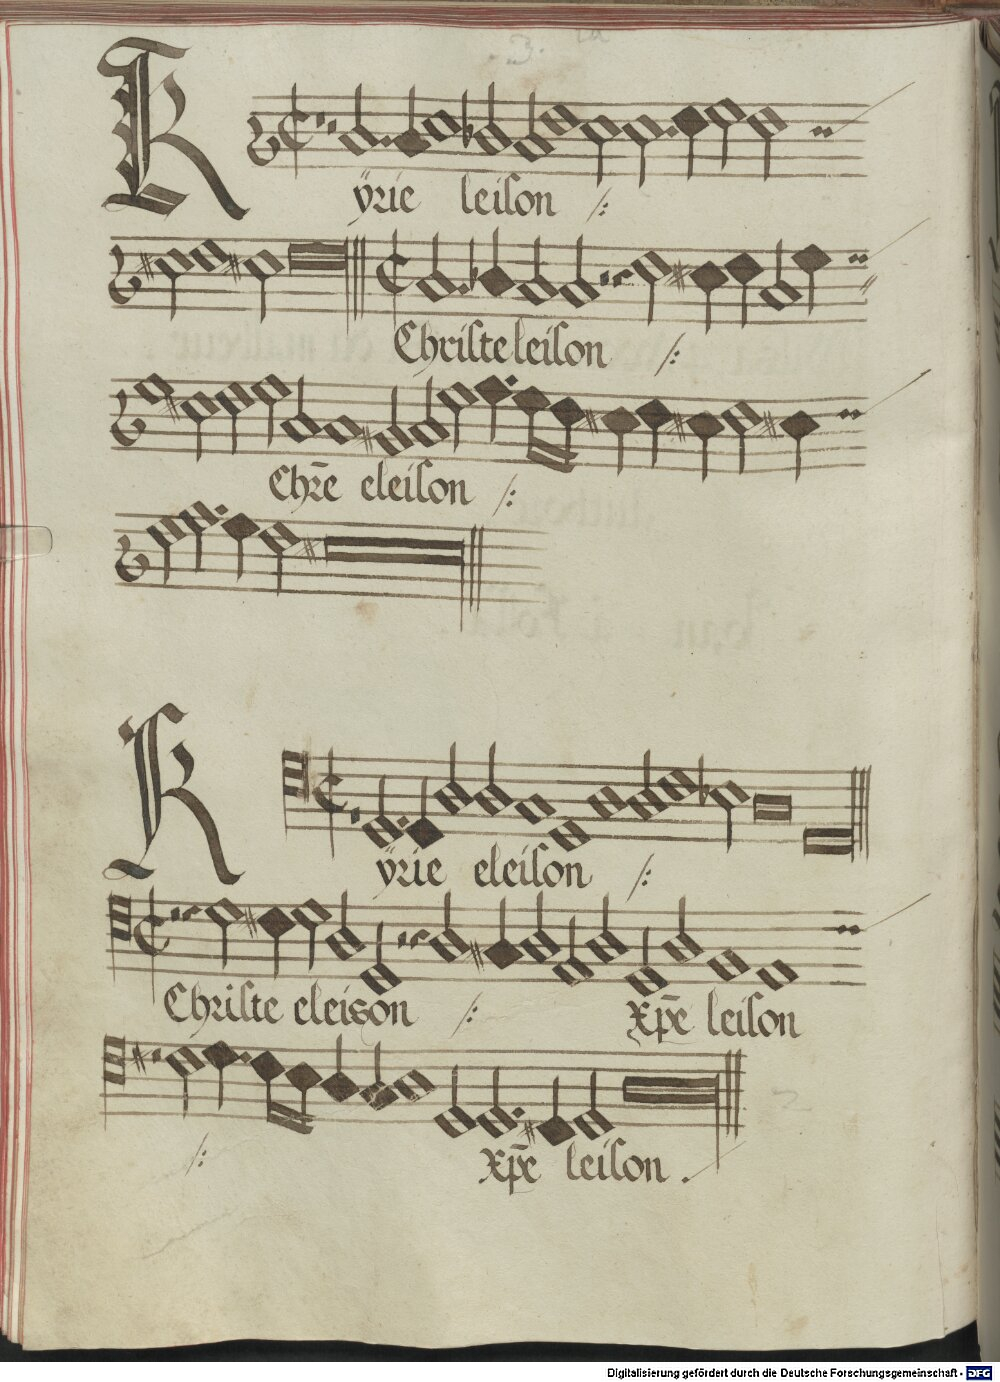 Kÿrie leiſon /:
Chriſte leiſon /:
Chr̄e eleiſon /:
Kÿrie eleiſon /:
Chriſte eleison /: Xp̄e leiſon
/: Xp̄e leiſon .
Digitalisierung gefördert durch die Deutsche Forschungsgemeinschaft - DFG